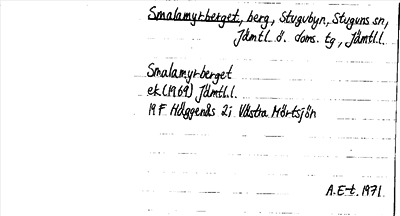 Smalamyrberget, berg, Stugubyn, Stuguns sn,
Jämtl. ö. doms. tg, Jämtl.l.
Smalamyrberget
ek.(1969) Jämtl.l.
19F Häggenås 2i Västra Mörtsjön
A.E-t. 1971.